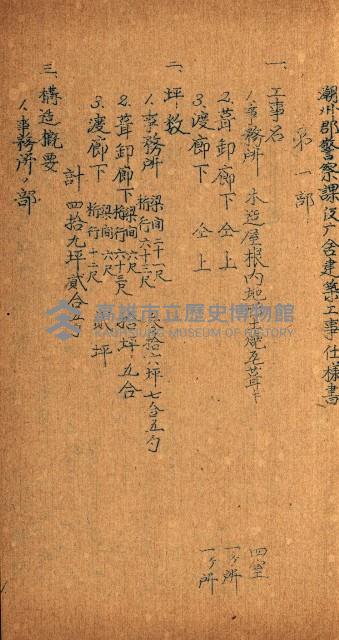 潮州郡警察課仮廳舍建築工事仕様書
第一部
一、工事名
1.事務所 木造屋根內地燒瓦葺キ 四室
2.葺卸廊下 仝上 一ヶ所
3.渡廊下 仝上 一ヶ所
二、坪数
1.事務所 梁間二十一尺 桁行六十三尺 拾六坪七合五勺
2.葺卸廊下 梁間六尺 桁行六十三尺 拾坪九合
3.渡廊下 梁間六尺 桁行十二尺 貳坪
計 四拾九坪貳合五勺
三、構造概要
1.事務所ノ部
高雄市立歷史博物館
KAOHSIUNG MUSEUM OF HISTORY